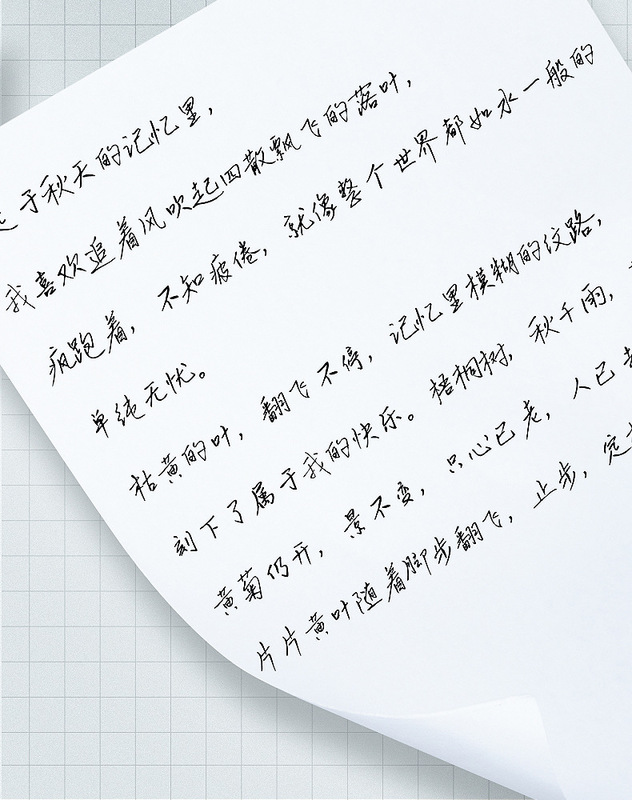 于秋天的记忆里，
我喜欢追着风吹起四散飘飞的落叶，
疯跑着，不知疲倦，就像整个世界都如水一般的
单纯无忧。
枯黄的叶，翻飞不停，记忆里模糊的纹路，
刻下了属于我的快乐。梧桐树，秋千雨，
黄菊仍开，景不变，只心已老，人已
片片黄叶随着脚步翻飞，止步，